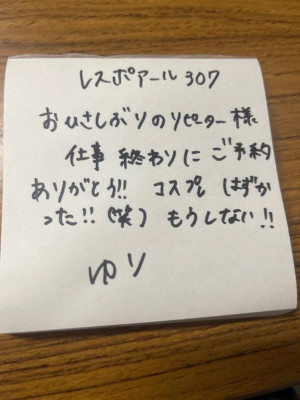 レスポアール307
おひさしぶりのリピーター様
仕事 終わりに ご予約
ありがとう!! コスプレ はずか
った!!(笑) もうしない!!
ゆり